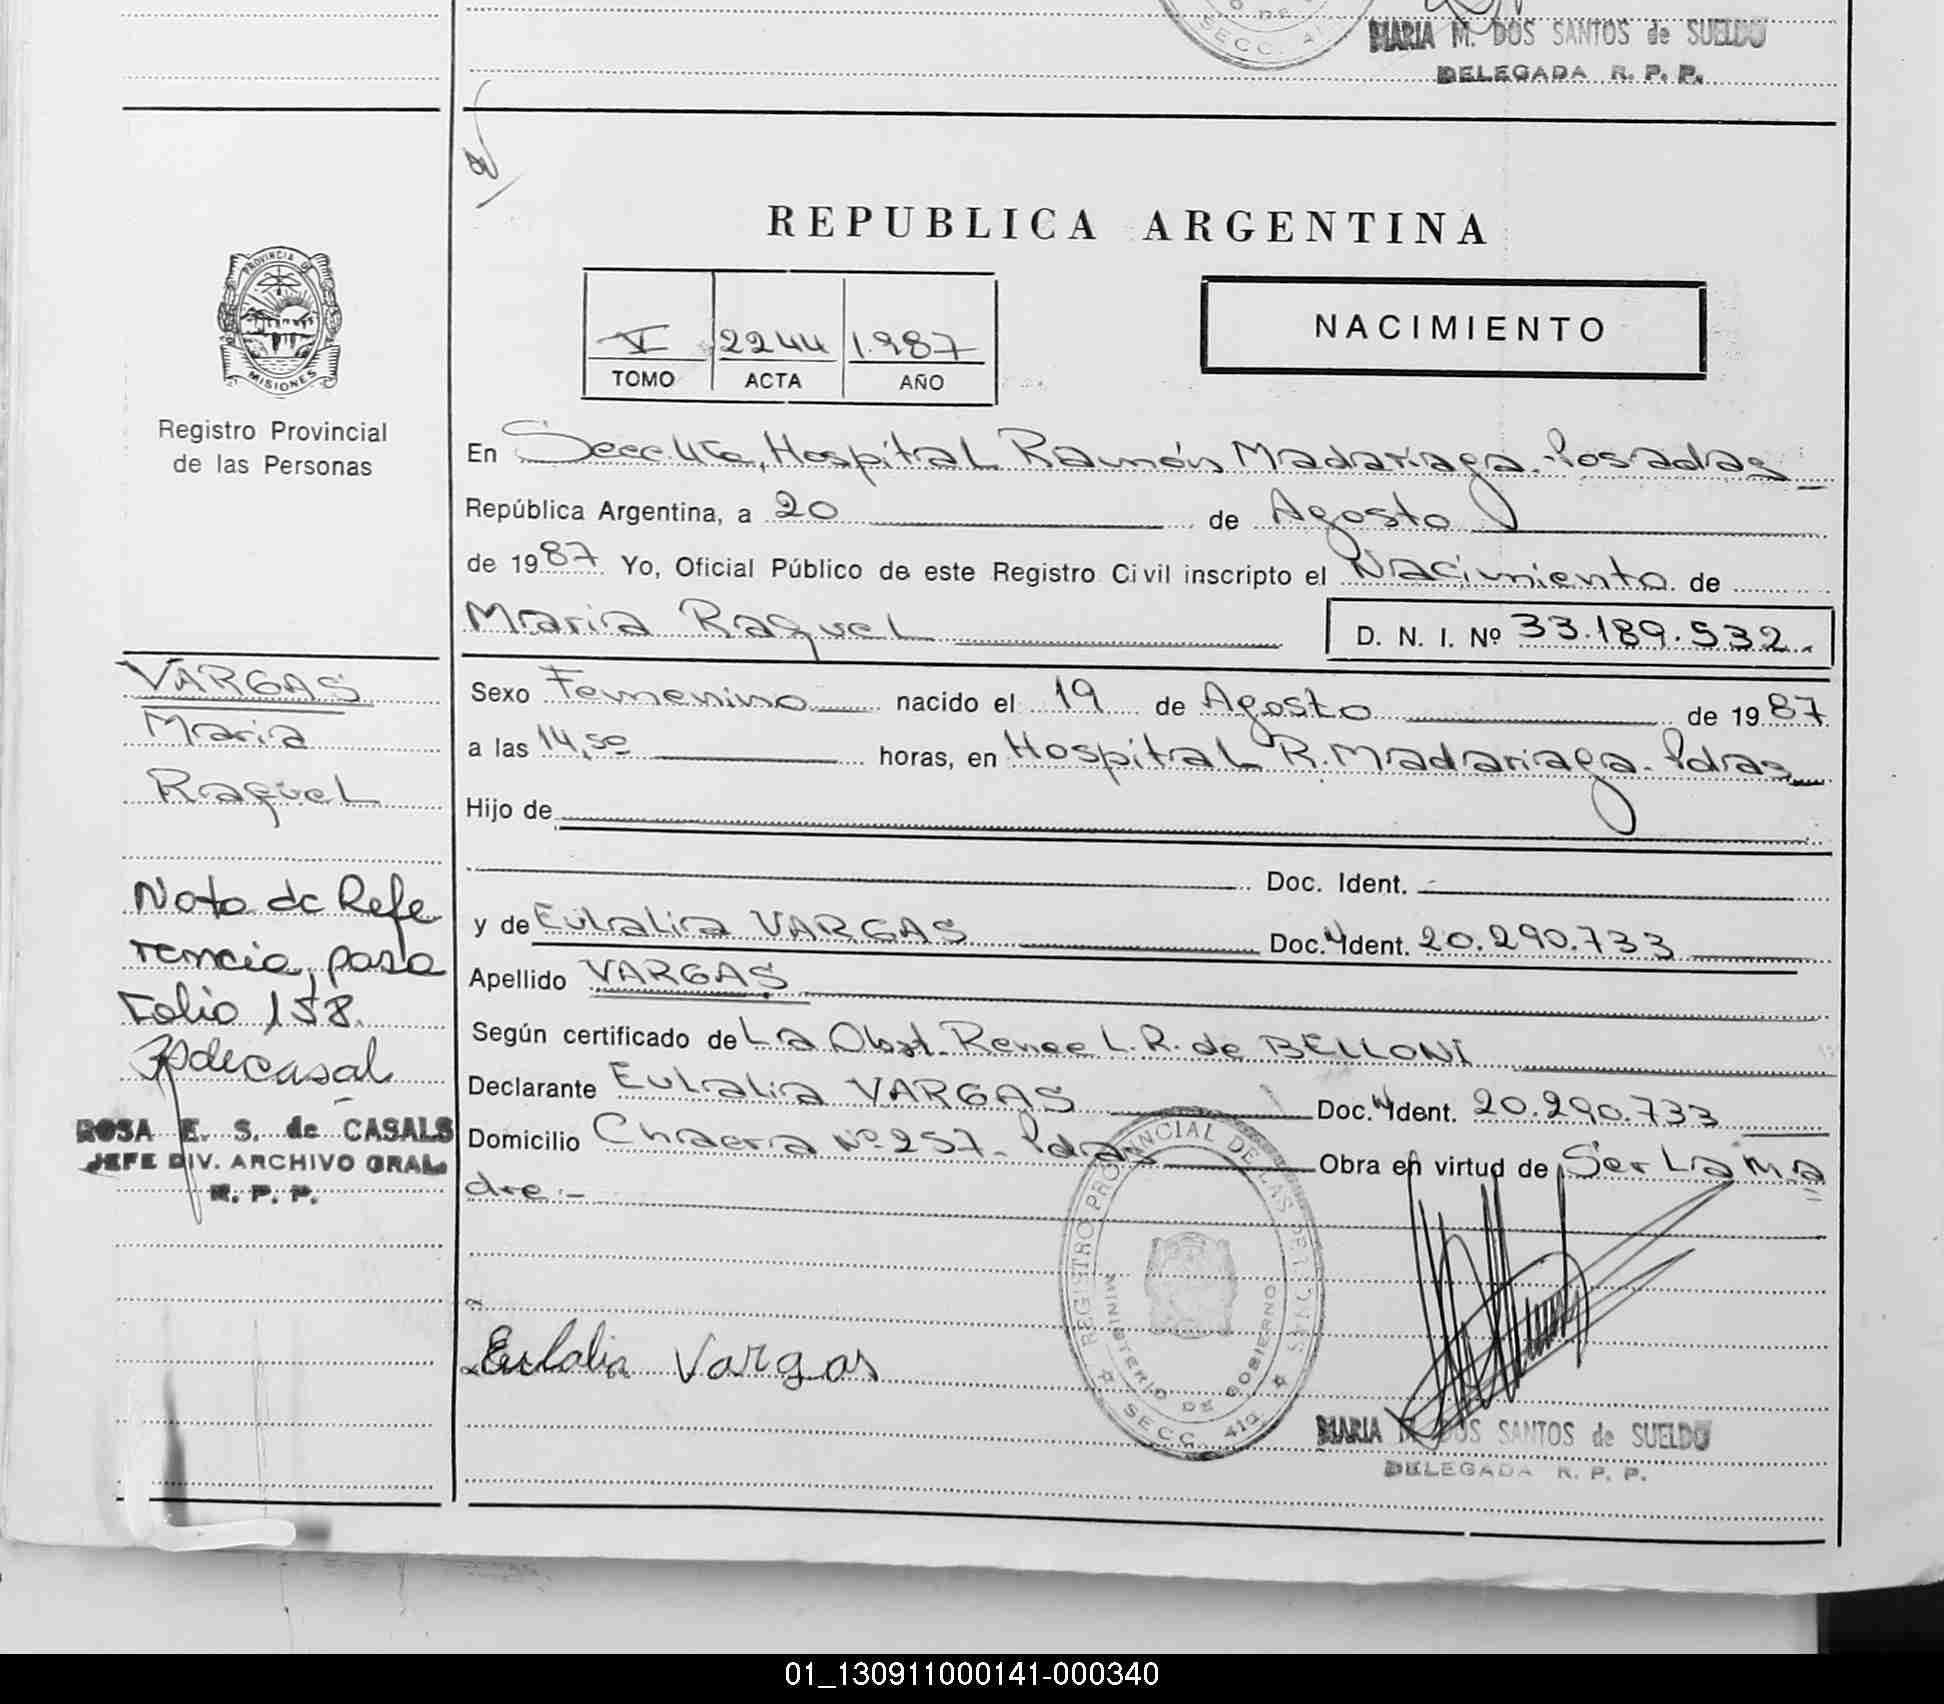 O DE
SECC. 41
MARIA M. DOS SANTOS de SUELDO
DELEGADA R. P. P.
REPUBLICA ARGENTINA
V 2244 1.987
TOMO ACTA AÑO
NACIMIENTO
PROVINCIA DE
MISIONES
Registro Provincial
de las Personas
En Secc 41a, Hospital Ramón Madariaga.-Posadas
República Argentina, a 20 de Agosto
de 1987 Yo, Oficial Público de este Registro Civil inscripto el Nacimiento de
Maria Raquel D. N. I. Nº 33.189.532.
Sexo Femenino nacido el 19 de Agosto de 1987
a las 14,50 horas, en Hospital R. Madariaga. Pdas
Hijo de
Doc. Ident.
y de Eulalia VARGAS Doc. Ident. 20.290.733
Apellido VARGAS
Según certificado de La Obst. Renee L. R. de BELLONI
Declarante Eulalia VARGAS Doc. Ident. 20.290.733
Domicilio Chacra Nº 257. Pdas Obra en virtud de Ser La Ma
dre.-
VARGAS
Maria
Raquel
Nota de Refe
rencia, pasa
Folio 158.
ROSA E. S. de CASALS
JEFE DIV. ARCHIVO GRAL.
R. P. P.
Eulalia Vargas
REGISTRO PROVINCIAL DE LAS PERSONAS
MINISTERIO DE GOBIERNO
SECC. 41a
MARIA M. DOS SANTOS de SUELDO
DELEGADA R. P. P.
01_130911000141-000340